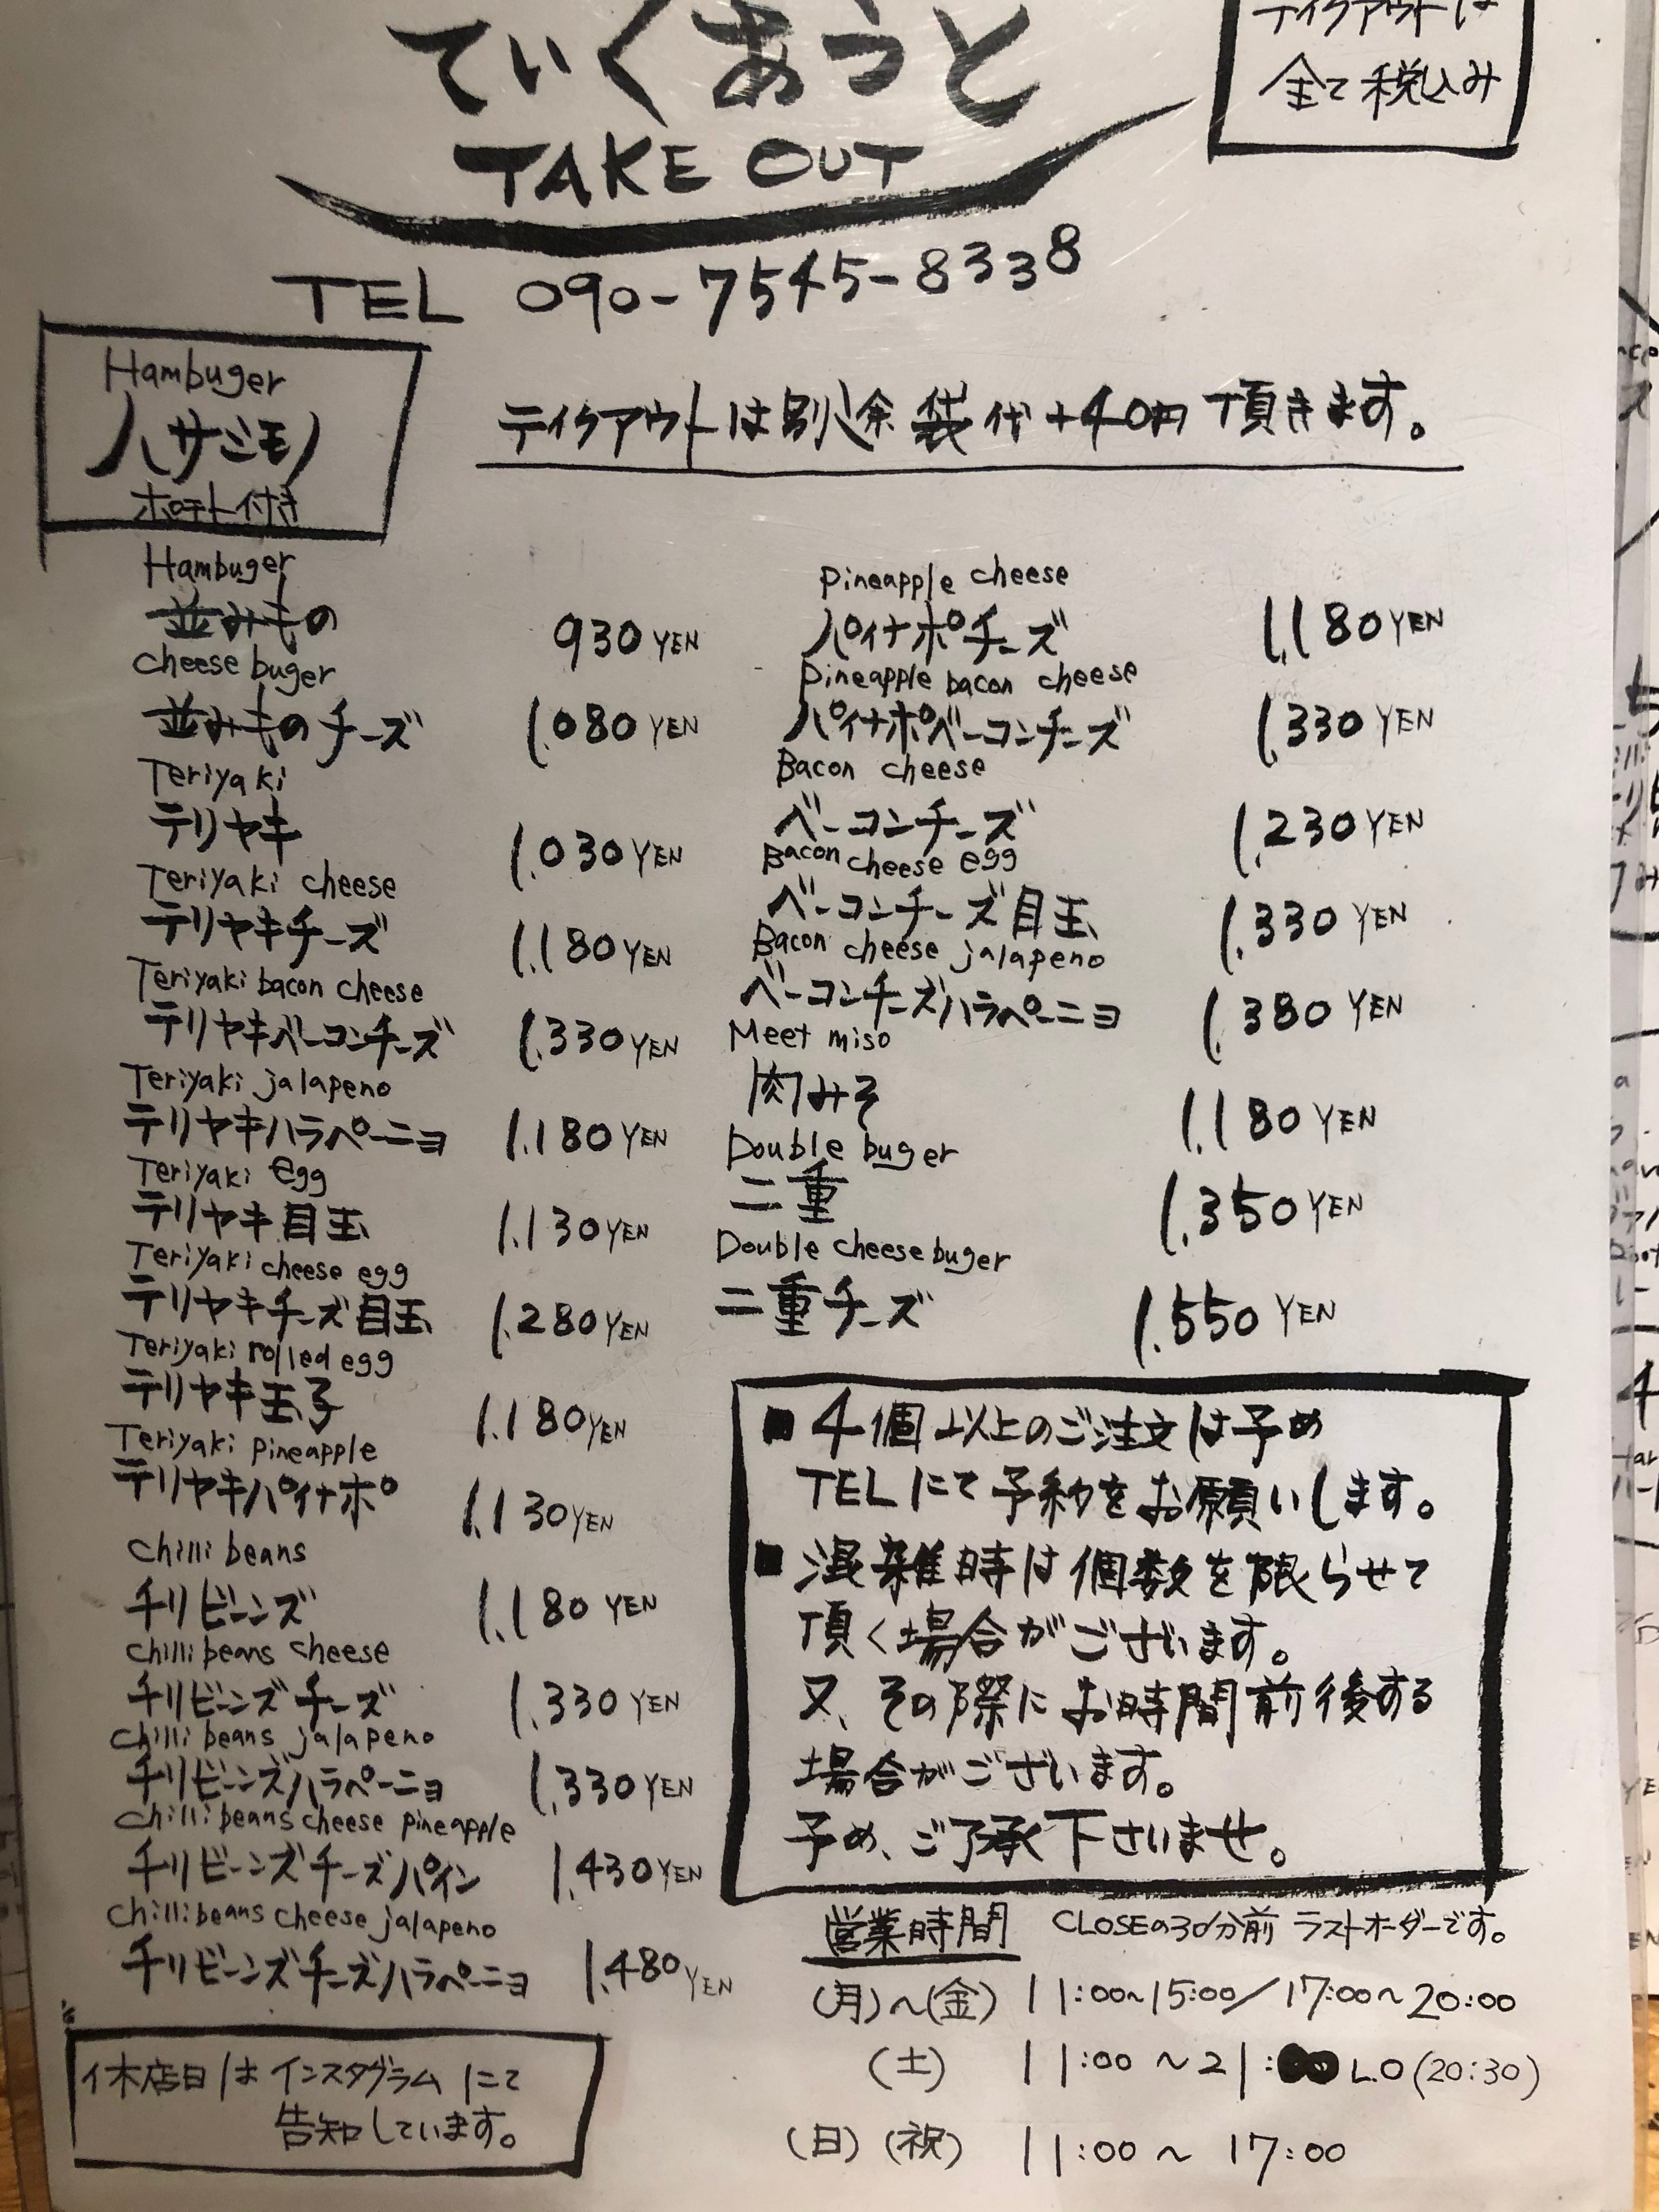 ていくあうと
TAKE OUT
テイクアウトは
全て税込み
TEL 090-7545-8338
Hambuger
ハサミモノ
ポテト付き
テイクアウトは別途袋代+40円頂きます。
Hambuger
並みもの 930 YEN
cheese buger
並みものチーズ 1.080 YEN
Teriyaki
テリヤキ 1.030 YEN
Teriyaki cheese
テリヤキチーズ 1.180 YEN
Teriyaki bacon cheese
テリヤキベーコンチーズ 1.330 YEN
Teriyaki jalapeno
テリヤキハラペーニョ 1.180 YEN
Teriyaki egg
テリヤキ目玉 1.130 YEN
Teriyaki cheese egg
テリヤキチーズ目玉 1.280 YEN
Teriyaki rolled egg
テリヤキ玉子 1.180 YEN
Teriyaki pineapple
テリヤキパイナポ 1.130 YEN
chilli beans
チリビーンズ 1.180 YEN
chilli beans cheese
チリビーンズチーズ 1.330 YEN
chilli beans jalapeno
チリビーンズハラペーニョ 1.330 YEN
chilli beans cheese pineapple
チリビーンズチーズパイン 1.430 YEN
chilli beans cheese jalapeno
チリビーンズチーズハラペーニョ 1.480 YEN
休店日はインスタグラムにて
告知しています。
Pineapple cheese
パイナポチーズ 1.180 YEN
Pineapple bacon cheese
パイナポベーコンチーズ 1.330 YEN
Bacon cheese
ベーコンチーズ 1.230 YEN
Bacon cheese egg
ベーコンチーズ目玉 1.330 YEN
Bacon cheese jalapeno
ベーコンチーズハラペーニョ 1.380 YEN
Meet miso
肉みそ 1.180 YEN
Double buger
二重 1.350 YEN
Double cheese buger
二重チーズ 1.550 YEN
■ 4個以上のご注文は予め
TELにて予約をお願いします。
■ 混雑時は個数を限らせて
頂く場合がございます。
又、その際にお時間前後する
場合がございます。
予め、ご了承下さいませ。
営業時間 CLOSEの30分前 ラストオーダーです。
(月)~(金) 11:00~15:00/17:00~20:00
(土) 11:00~21:00 L.O (20:30)
(日)(祝) 11:00~17:00